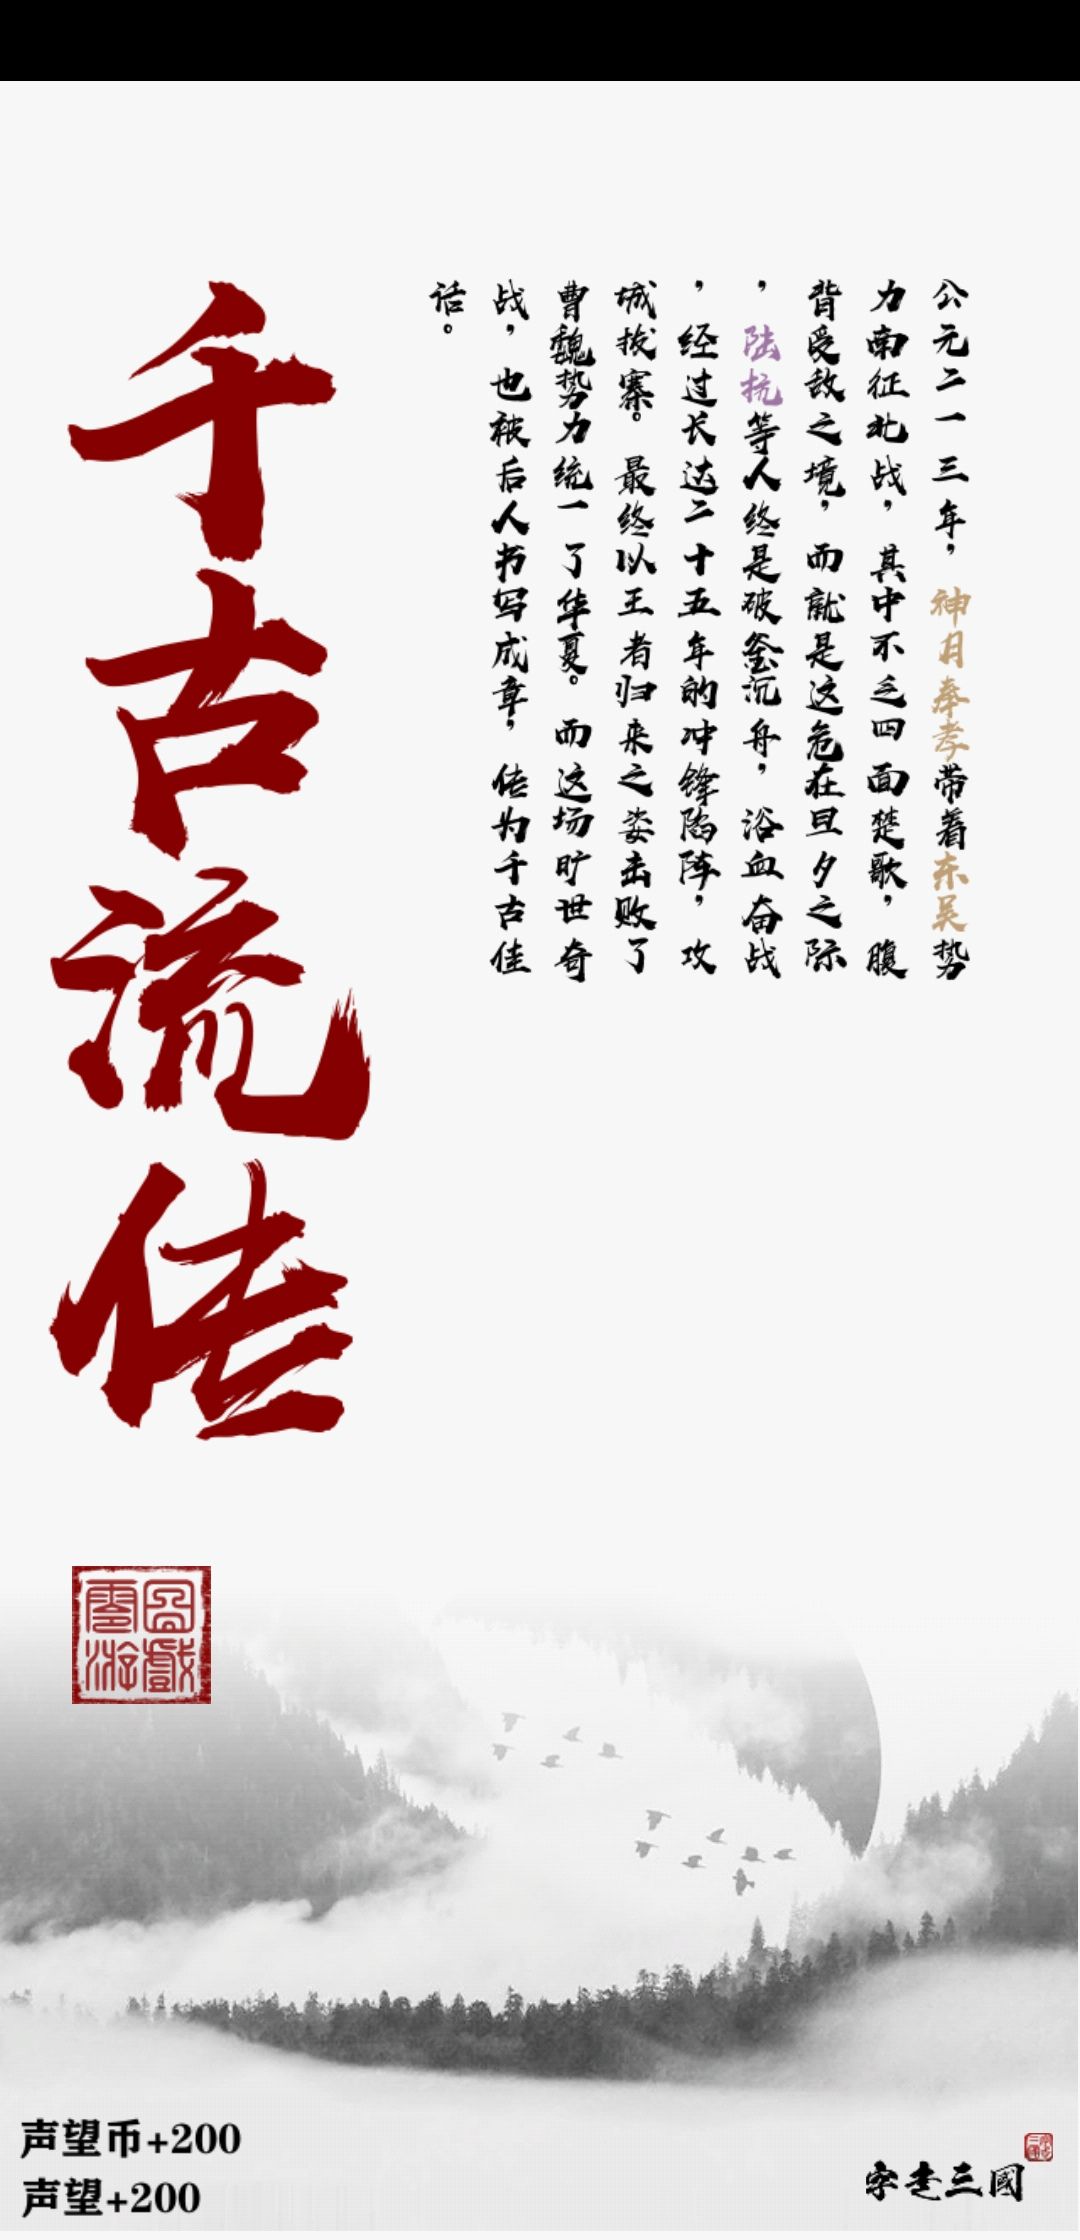 公元二一三年，神月奉孝带着东吴势
力南征北战，其中不乏四面楚歌，腹
背受敌之境，而就是这危在旦夕之际
，陆抗等人终是破釜沉舟，浴血奋战
，经过长达二十五年的冲锋陷阵，攻
城拔寨。最终以王者归来之姿击败了
曹魏势力统一了华夏。而这场旷世奇
战，也被后人书写成章，传为千古佳
话。
千古流传
声望币+200
声望+200
字走三國